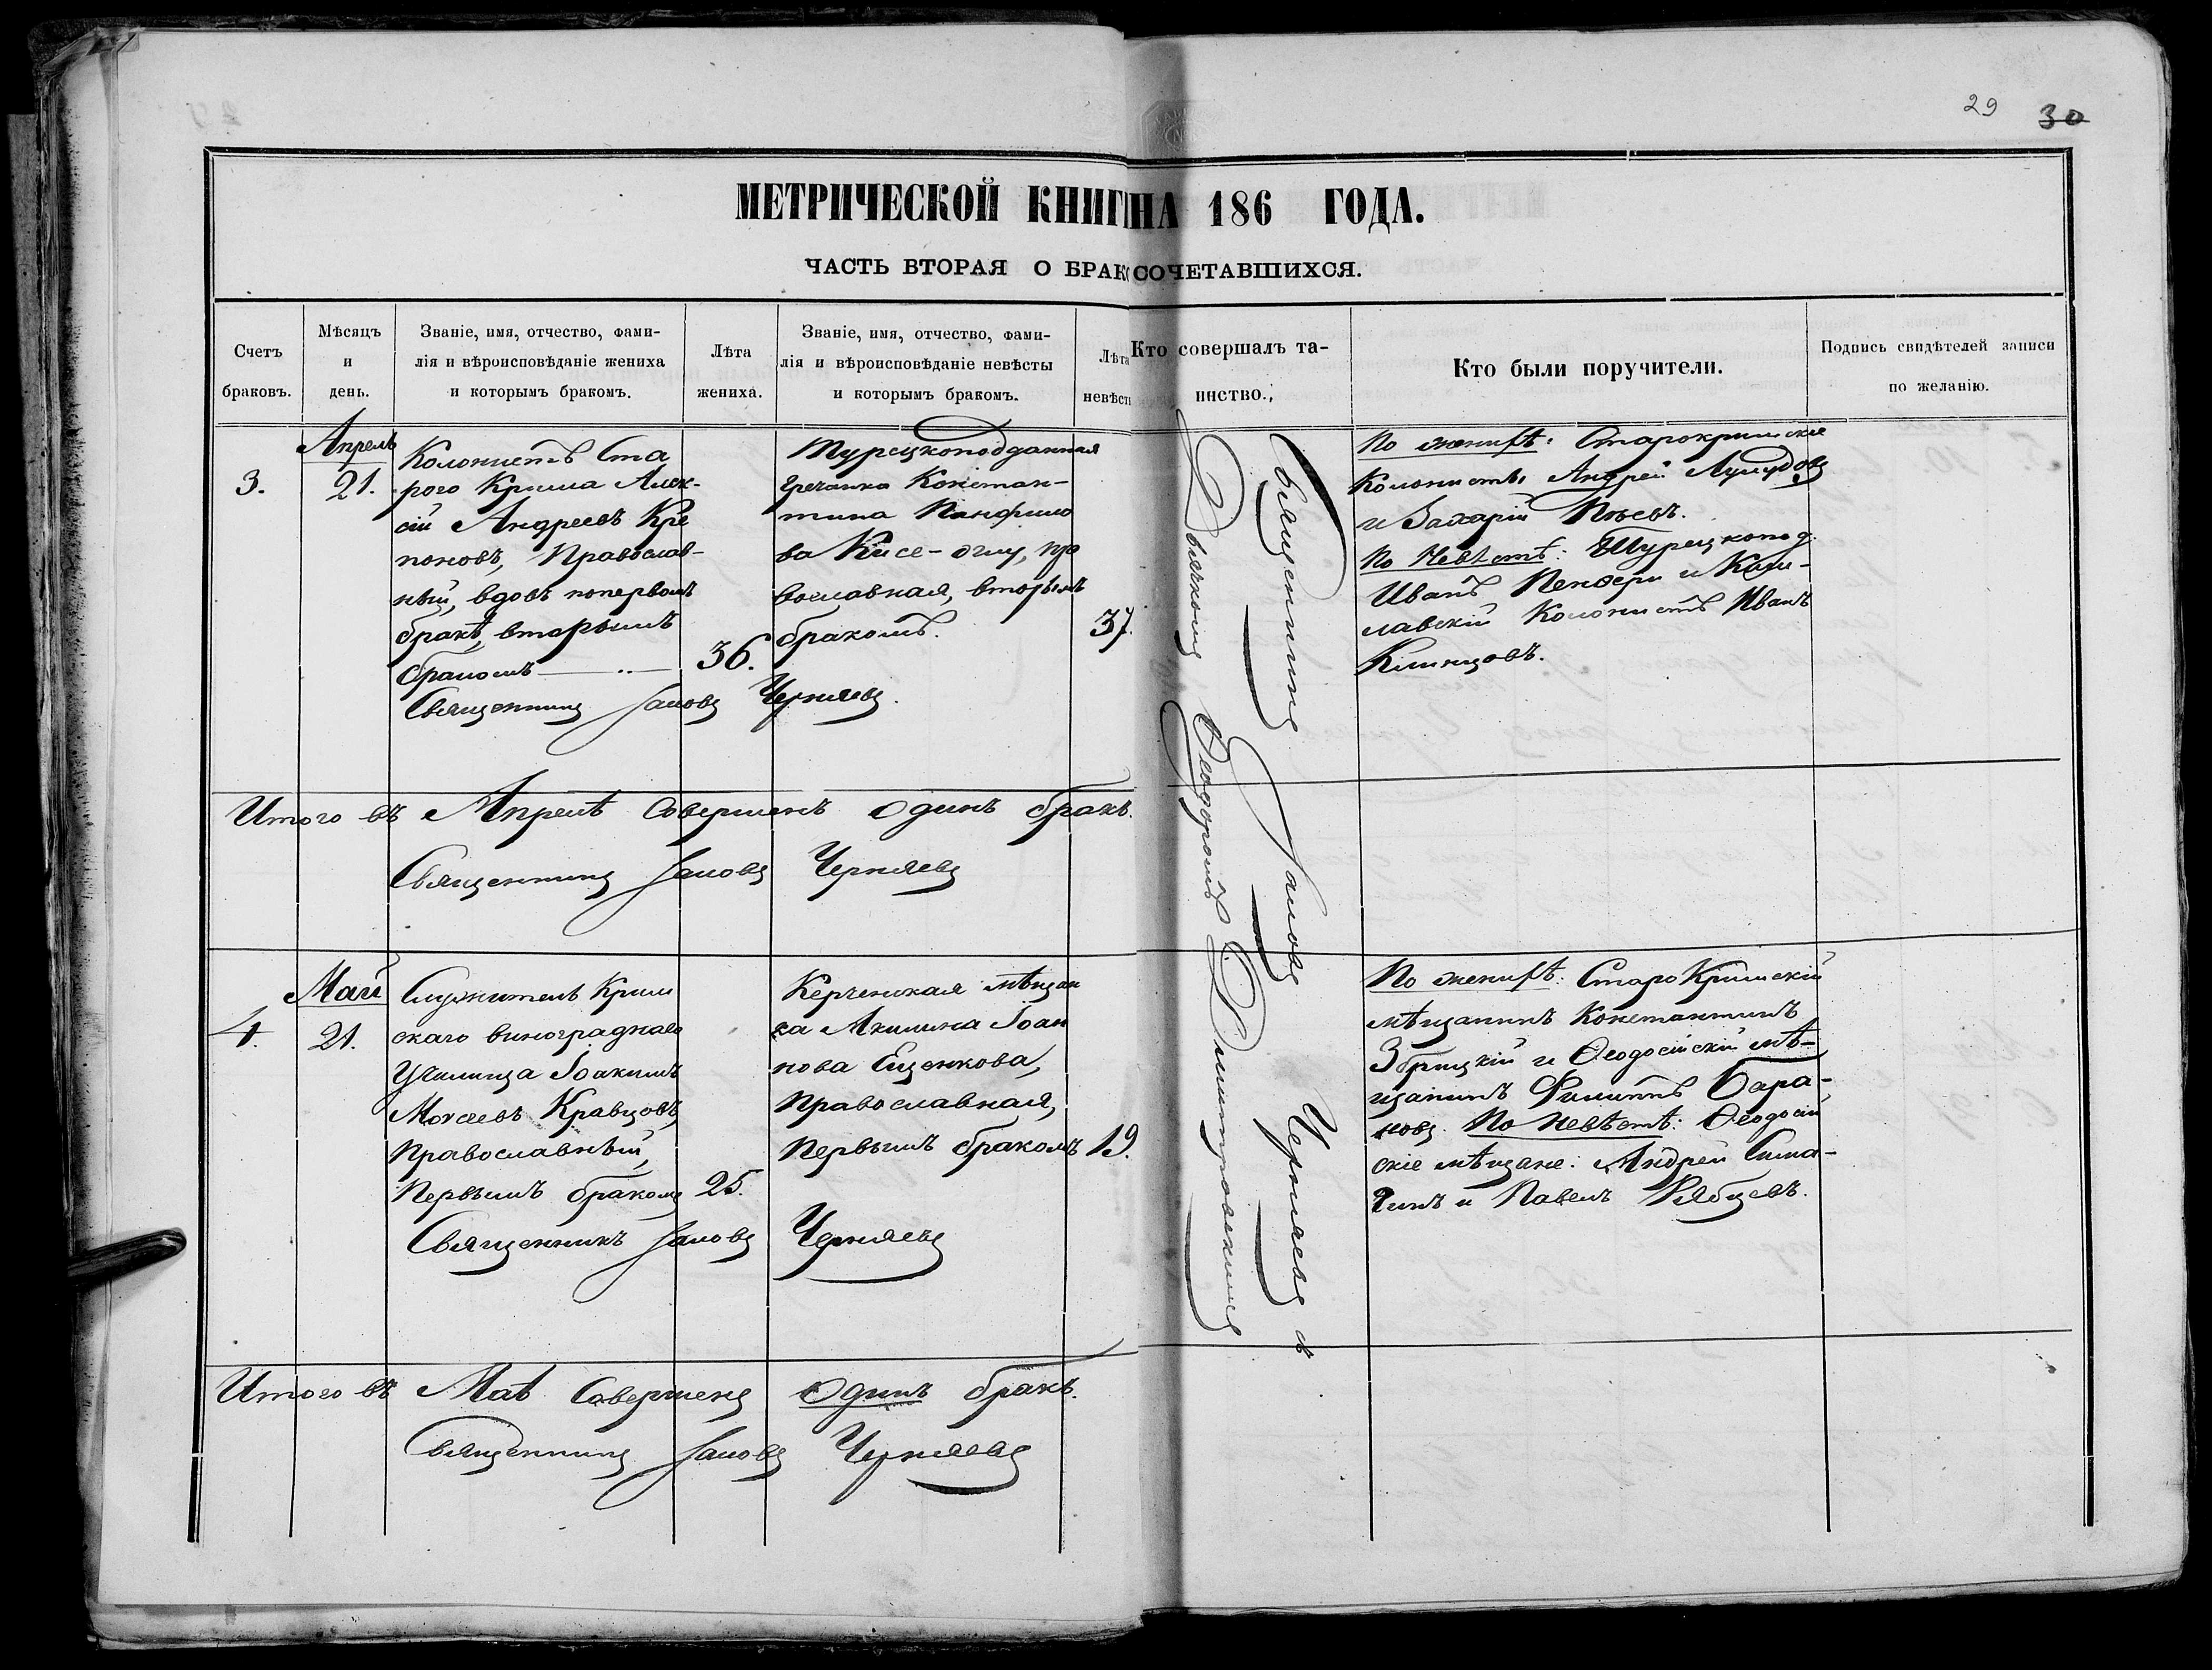 29 30
МЕТРИЧЕСКОЙ КНИГИ НА 186 ГОДА.
ЧАСТЬ ВТОРАЯ О БРАКОСОЧЕТАВШИХСЯ.
Счетъ
браковъ.
Мѣсяцъ
и
день.
Званіе, имя, отчество, фами-
лія и вѣроисповѣданіе жениха
и которымъ бракомъ.
Лѣта
жениха.
Званіе, имя, отчество, фами-
лія и вѣроисповѣданіе невѣсты
и которымъ бракомъ.
Лѣта
невѣсты
Кто совершалъ та-
инство.
Кто были поручители.
Подпись свидѣтелей записи
по желанію.
3.
Апрель
21.
Колонистъ Ста
раго Крыма Алек-
сій Андреевъ
Православ-
ный, вдовъ поперво­мъ
бракѣ, вторымъ
бракомъ
36.
Турецкоподданная
Гречанка Констан-
тина Панфило
ва Кисе-оглу, пра
вославная, вторымъ
бракомъ.
37.
Священникъ Іаковъ Черняевъ.
По женихѣ: Старокрымскіе
Колонисты Андрей
и Захарій
По Невѣстѣ: Турецкопод.
Иванъ и Киш-
лавскій Колонистъ Иванъ
Клинцовъ.
Итого въ Апрелѣ Совершенъ Одинъ бракъ.
Священникъ Іаковъ Черняевъ
4.
Май
21.
Служитель Крым
скаго винограднаго
Училища Іоакимъ
Моисеевъ Кравцовъ,
Православный,
Первымъ бракомъ
25.
Керченская мѣщан
ка Акилина Іоан
нова Ещенкова,
Православная,
Первымъ бракомъ
19.
Священникъ Іаковъ Черняевъ
По женихѣ: СтароКрымскій
мѣщанинъ Константинъ
Збрицкій и Ѳеодосійскій мѣ-
щанинъ Филиппъ Бара-
новъ. По Невѣстѣ: Ѳеодосій
скіе мѣщане: Андрей
и Павелъ Рябцевъ.
Священникъ Іаковъ Черняевъ съ
Дьячкомъ Ѳеодоромъ Димитровскимъ
Итого въ Маѣ Совершенъ Одинъ бракъ.
Священникъ Іаковъ Черняевъ